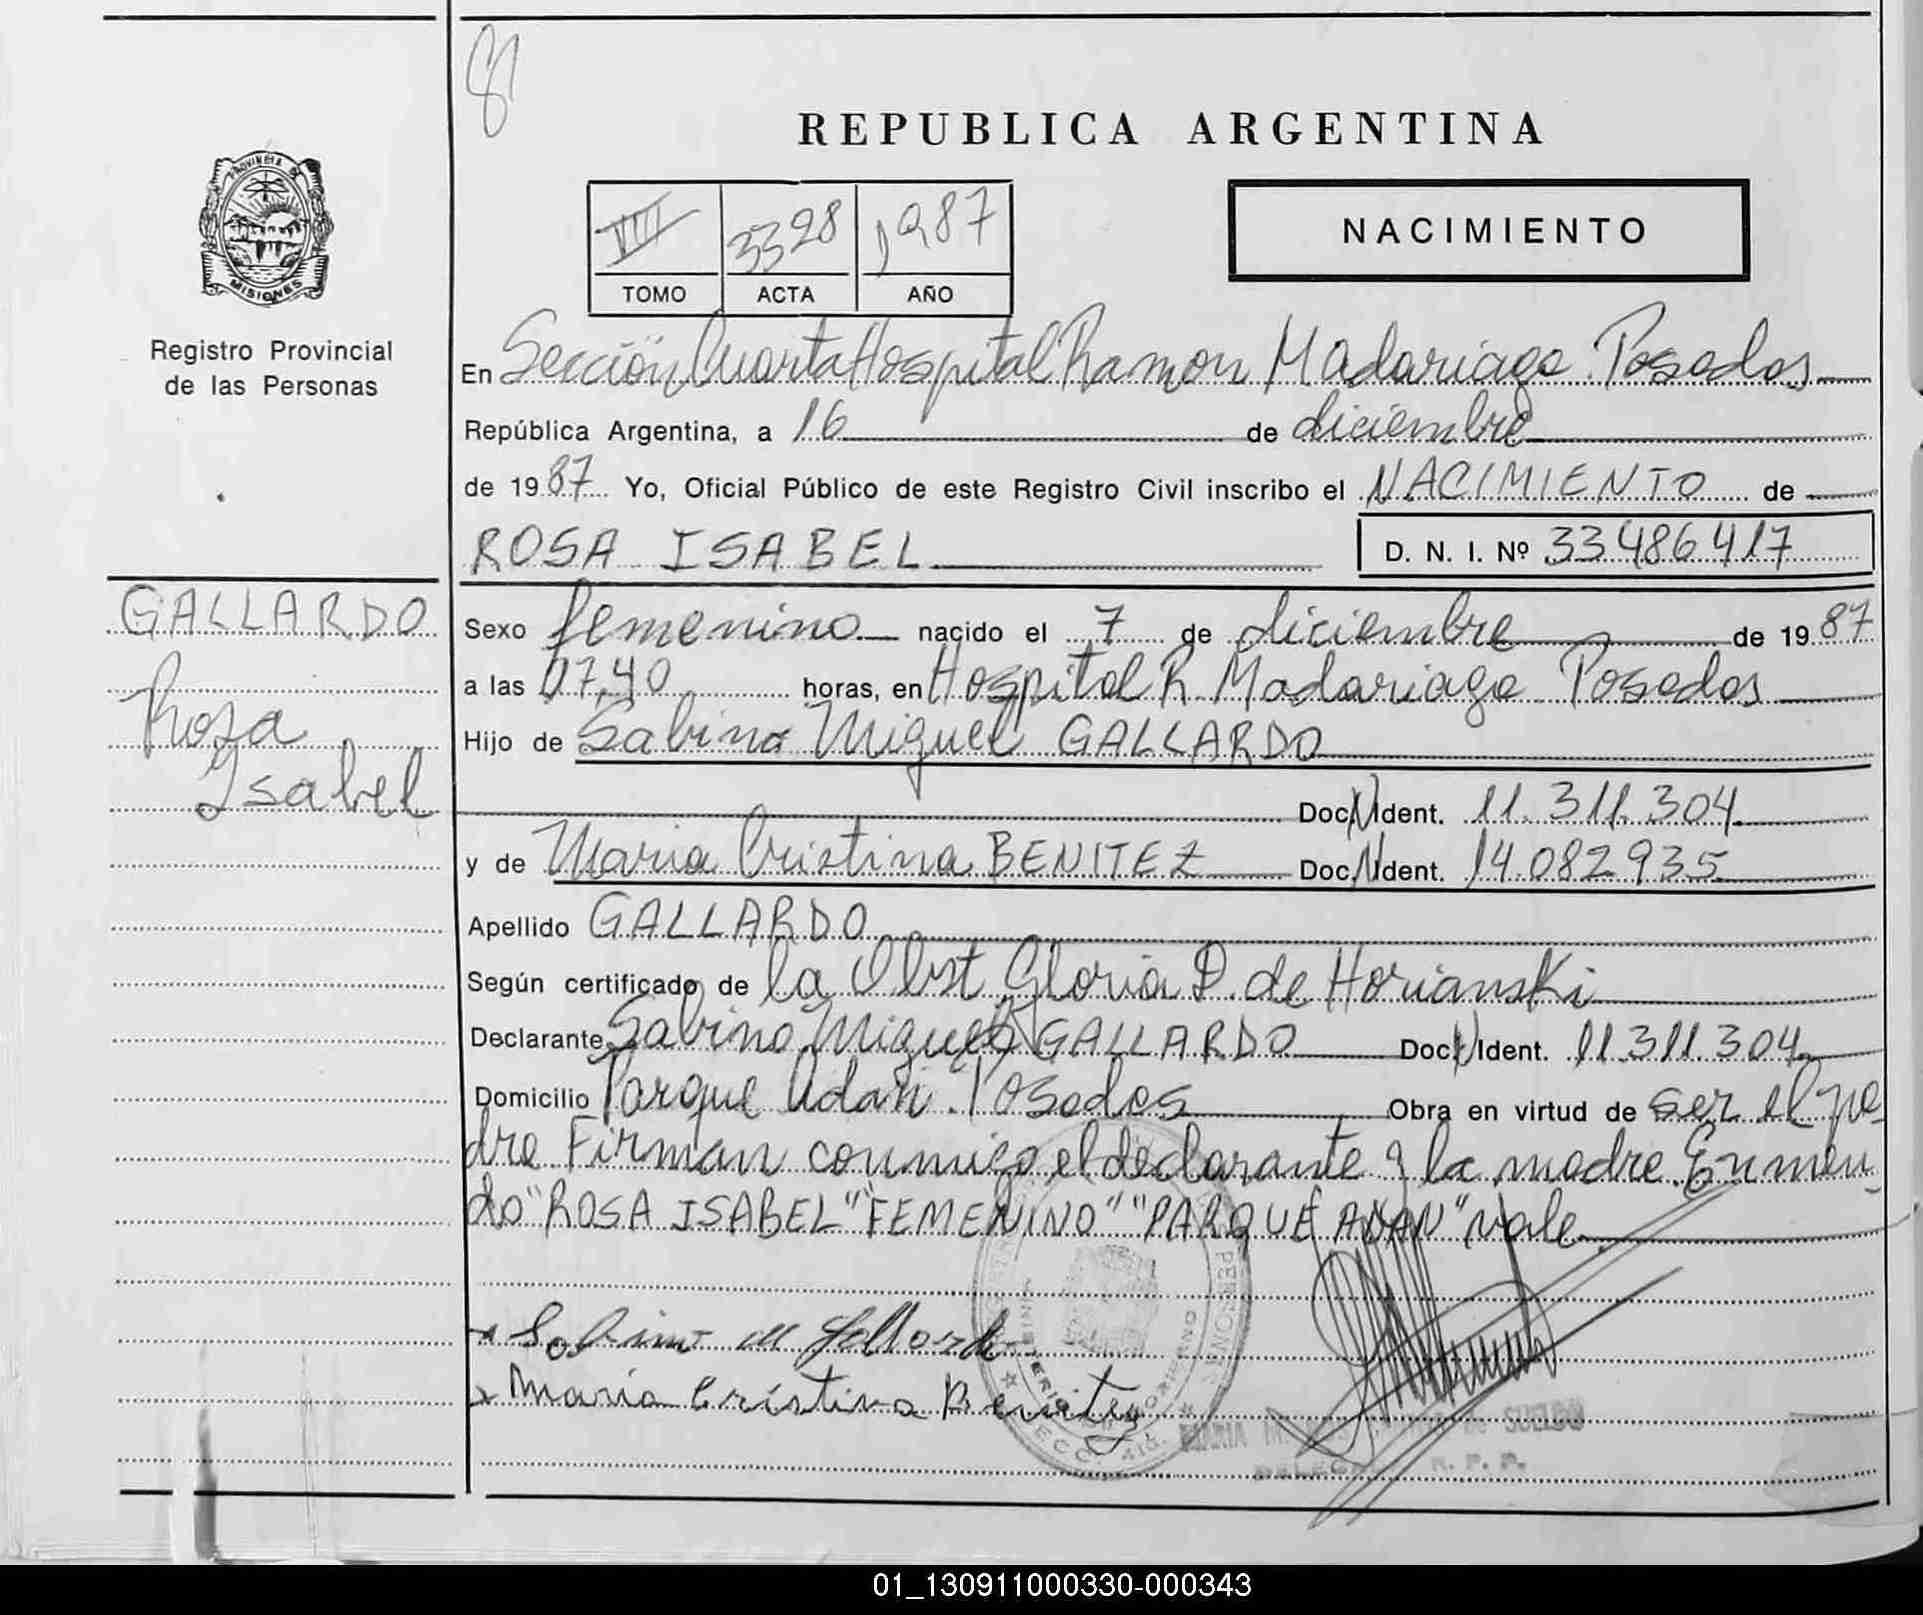 81
REPUBLICA ARGENTINA
PROVINCIA DE
MISIONES
Registro Provincial
de las Personas
VIII 3398 1987
TOMO ACTA AÑO
NACIMIENTO
En Sección Cuarta Hospital Ramon Madariaga. Posadas
República Argentina, a 16 de diciembre
de 1987 Yo, Oficial Público de este Registro Civil inscribo el NACIMIENTO de
ROSA ISABEL D. N. I. Nº 33486417
GALLARDO
Rosa
Isabel
Sexo femenino nacido el 7 de diciembre de 1987
a las 07,40 horas, en Hospital R. Madariaga Posadas
Hijo de Sabino Miguel GALLARDO
Doc. N Ident. 11.311.304
y de Maria Cristina BENITEZ Doc. N Ident. 14.082935
Apellido GALLARDO
Según certificado de la Obst Gloria D. de Horianski
Declarante Sabino Miguel GALLARDO Doc. N Ident. 11.311.304
Domicilio Parque Adan. Posadas Obra en virtud de ser el pa-
dre Firman conmigo el declarante y la madre. Enmen-
do "ROSA ISABEL" "FEMENINO" "PARQUE ADAN" vale
Sabino M Gallardo
Maria Cristina Benitez
MARIA M. de SUELDO
R. P. P.
01_130911000330-000343